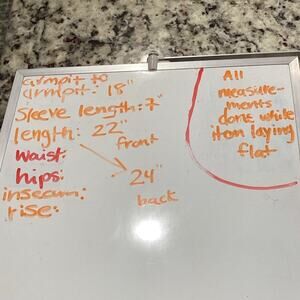 armpit to
armpit: 18"
Sleeve length: 7"
length: 22"
front
waist:
hips:
24"
back
inseam:
rise:
All
measure-
ments
done while
item laying
flat